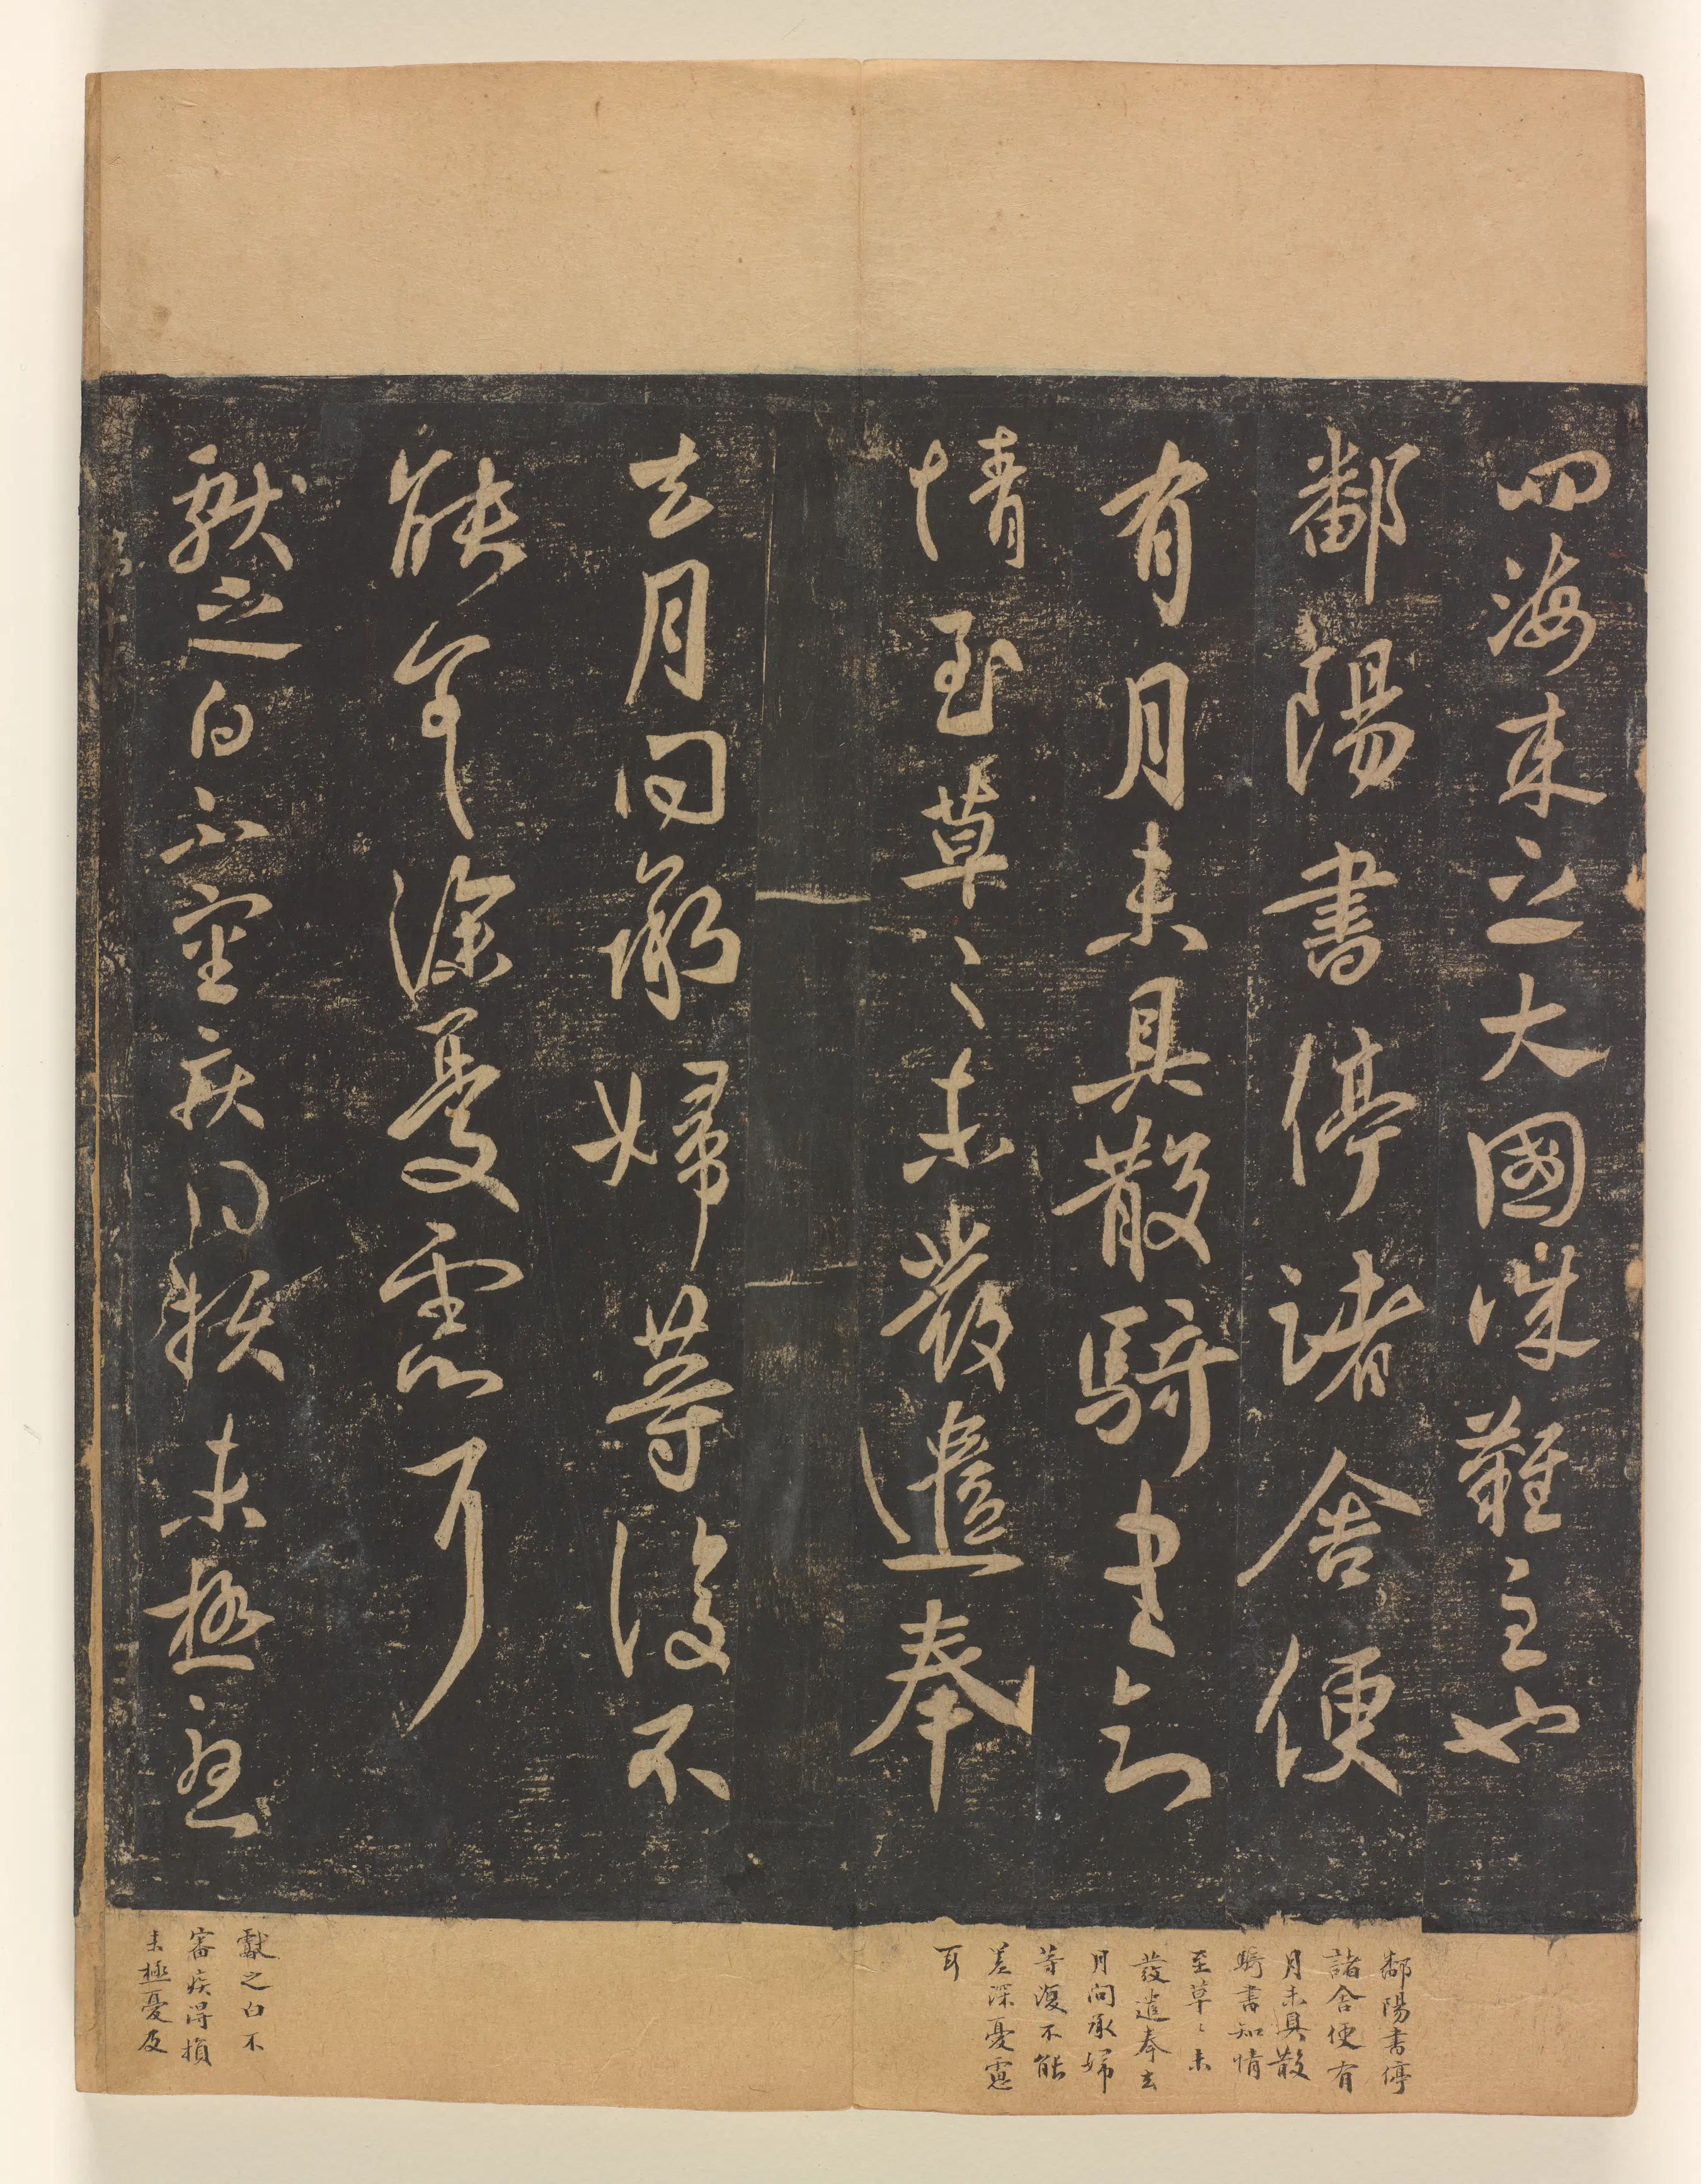 四海之大國誠難主也
鄱陽書停諸舍便
有月未具散騎書知
情至草〻未發遣奉
去月問承婦等復不
能差深憂慮耳
獻之白不審疾得損未極憂
鄱陽書停
諸舍便有
月未具散
騎書知情
至草〻未
發遣奉去
月問承婦
等復不能
差深憂慮
耳
獻之白不
審疾得損
未極憂及